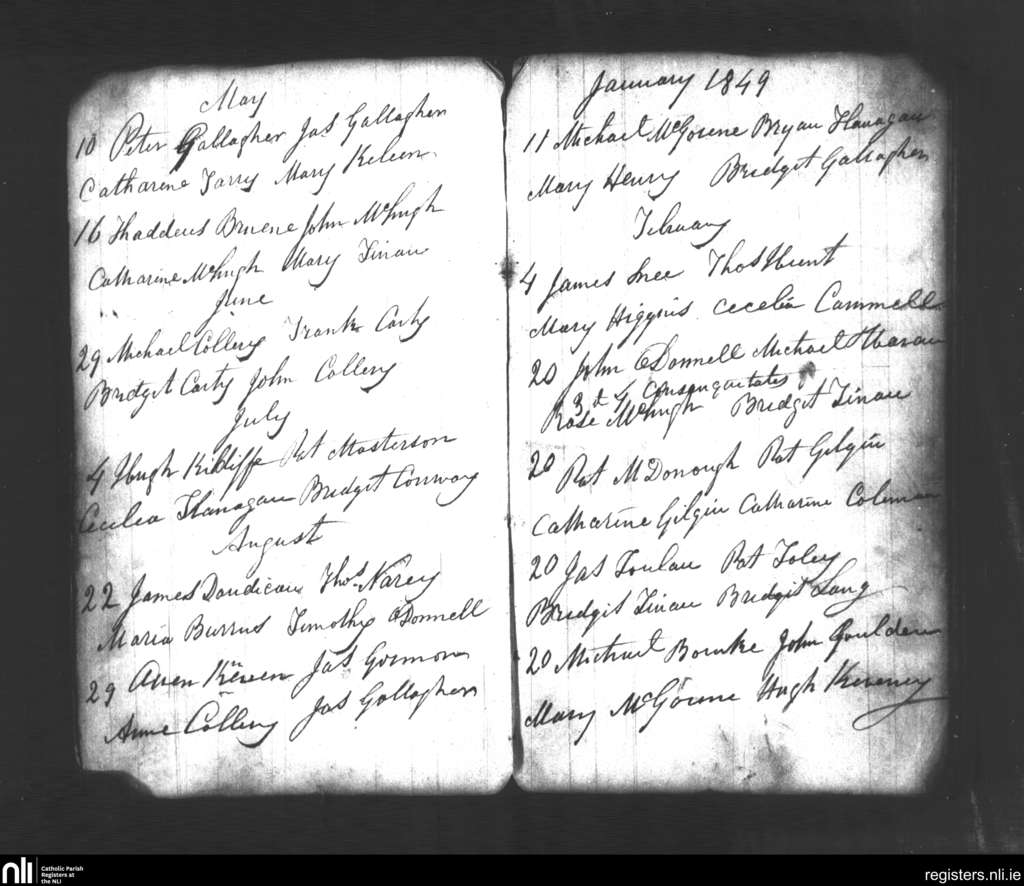 May
10 Peter Gallagher Jas Gallagher
Catharine Tarry Mary Kileen
16 Thaddeus Bruene John McHugh
Catharine McHugh Mary Finan
June
29 Michael Collery Frank Carty
Bridget Carty John Collery
July
4 Hugh Kilcliffe Pat Masterson
Cecilia Flanagan Bridget Conway
August
22 James Dondican Thos Narey
Maria Burrus Timothy O'Donnell
29 Owen Keveen Jas Gormon
Anne Collery Jas Gallagher
January 1849
11 Michael McGoene Bryan Flanagan
Mary Henry Bridget Gallagher
February
4 James Snee Thos Hunt
Mary Higgins Cecelia Cammell
20 John O'Donnell Michael Haran
3 et 4 Consanguitatis
Rose McHugh Bridget Finan
20 Pat McDonough Pat Gilgin
Catharine Gilgin Catharine Coleman
20 Jas Foulan Pat Foley
Bridgit Finan Bridgit Lang
20 Michael Bourke John Goulden
Mary McGoene Hugh Keveney
nli
Catholic Parish
Registers at
the NLI
registers.nli.ie